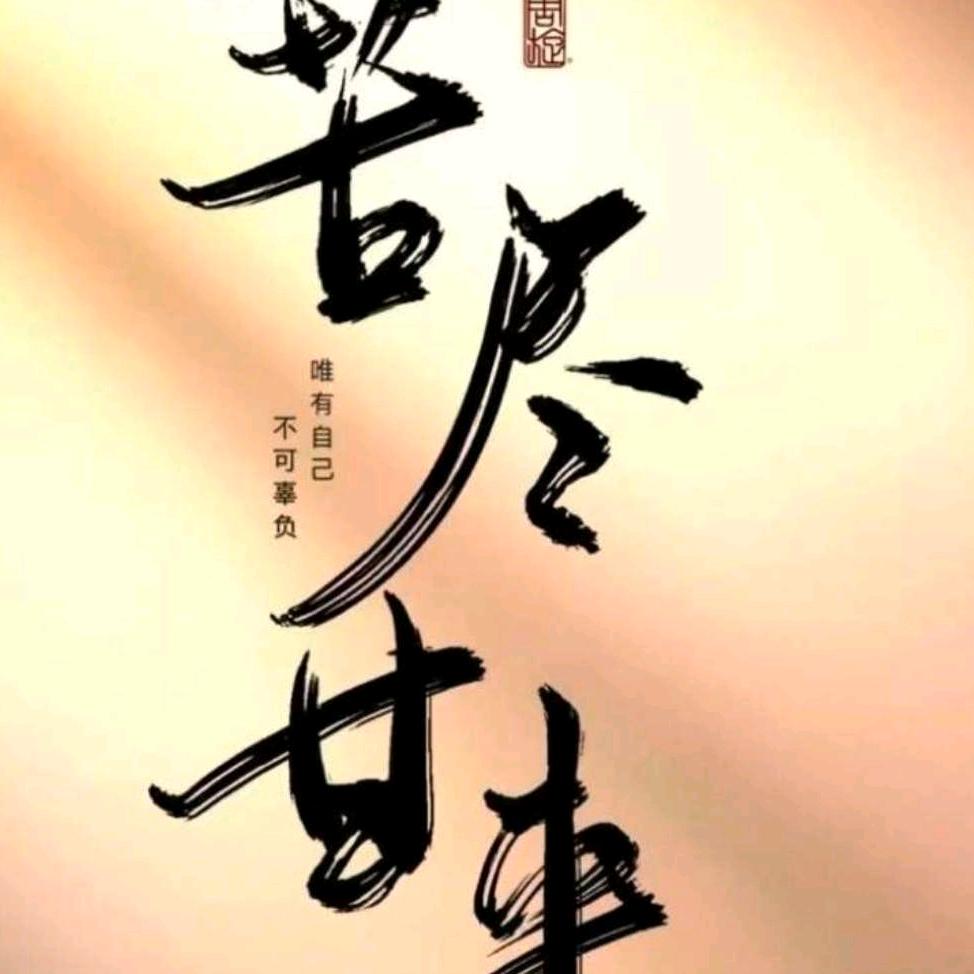 苦尽甘来
唯有自己
不可辜负